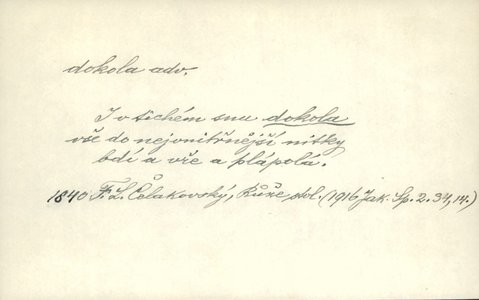 dokola adv.
I v tichém snu dokola
vše do nejvnitřnější nitky
bdí a vře a plápolá.
1840 F. L. Čelakovský, Růže stol. (1916 Jak. Sp. 2. 34, 14.)